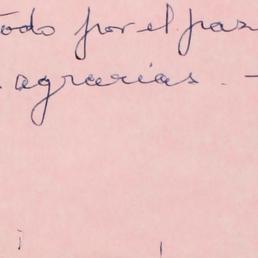 todo por el paz
agrarias. -